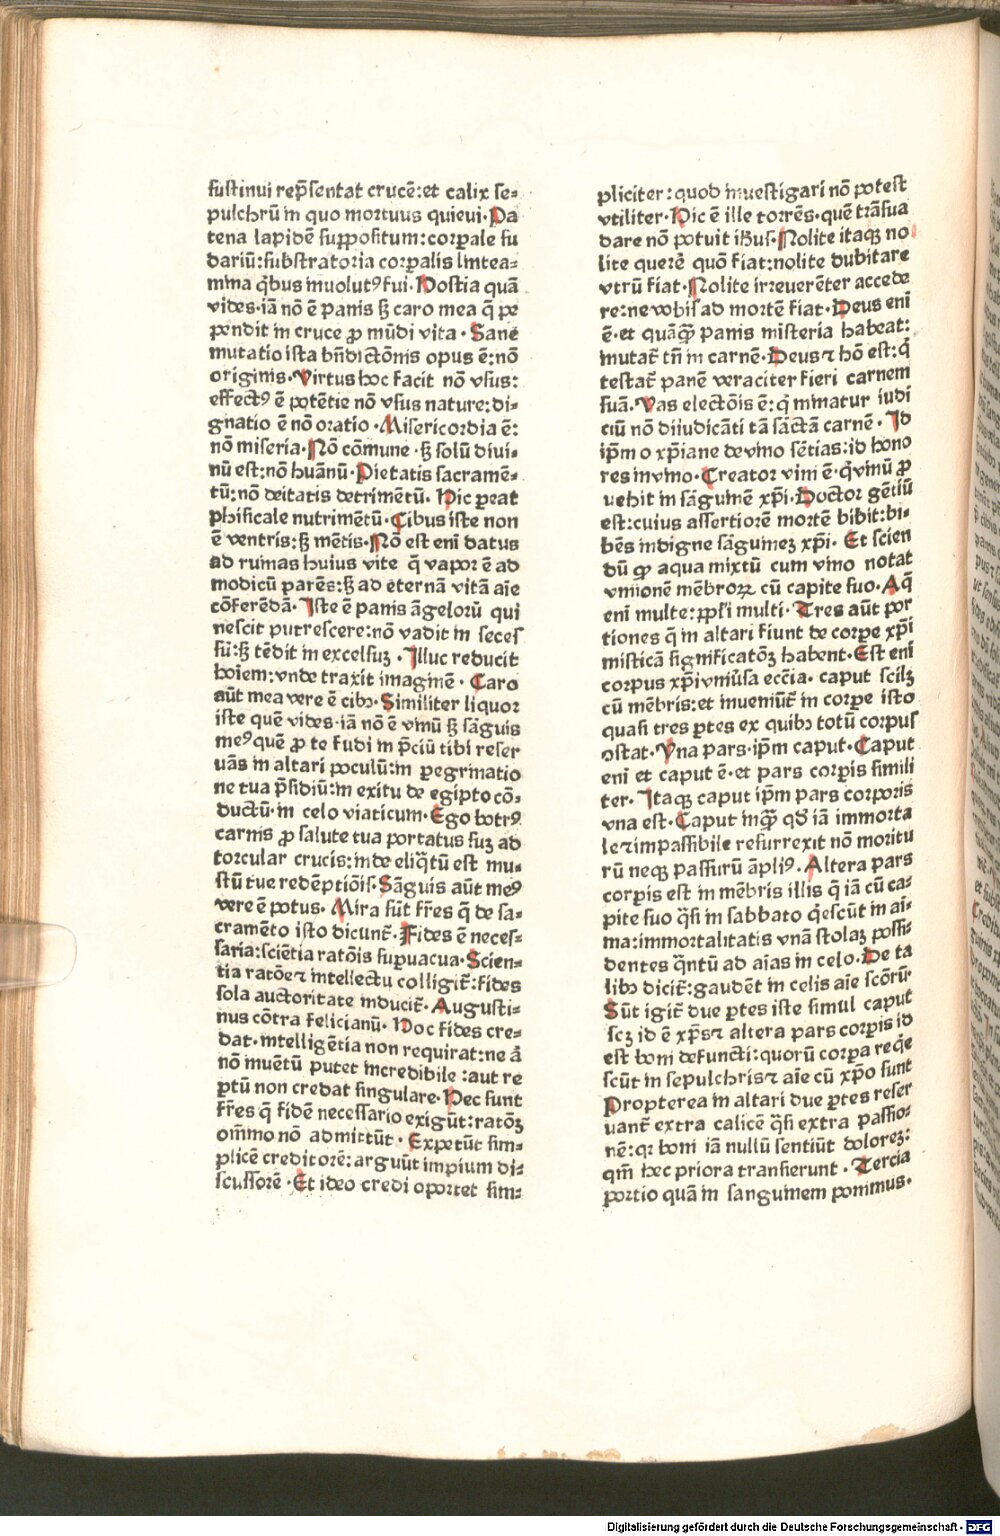 sustinui rep̃sentat crucē:et calix se-
pulchrū in quo mortuus quieui·Pa
tena lapidē suppositum:corpale su
dariū:substratoria corpalis lintea-
mina q̄bus inuolutꝰ fui·Hostia quā
vides·iā nō ē panis sꝫ caro mea q̄ pe
pendit in cruce ꝓ mūdi vita·Sane
mutatio ista bñdictōnis opus ē:nō
originis·Virtus hoc facit nō vsus:
effectꝰ ē potētie nō vsus nature:di-
gnatio ē nō oratio·Misericordia ē:
nō miseria·Nō cōmune·sꝫ solū diui-
nū est:nō huānū·Pietatis sacramē-
tū:nō deitatis detrimētū·Hic ꝑeat
phificale nutrimētū·Cibus iste non
ē ventris:sꝫ mētis·Nō est eni datus
ad ruinas huius vite q̄ vapor ē ad
modicū parēs:sꝫ ad eternā vitā aīe
cōferēdā·Iste ē panis āgelorū qui
nescit putrescere:nō vadit in seces
sū:sꝫ tēdit in excelsuꝫ·Illuc reducit
hoīem:vnde traxit imaginē·Caro
aūt mea vere ē cibꝰ·Similiter liquor
iste quē vides·iā nō ē vinū sꝫ sāguis
meꝰ quē ꝓ te fudi in p̄ciū tibi reser
uās in altari poculū:in ꝑegrinatio
ne tua p̄sidiū:in exitu de egipto cō-
ductū·in celo viaticum·Ego botrꝰ
carnis ꝓ salute tua portatus suꝫ ad
torcular crucis:inde eliq̄tū est mu-
stū tue redēptiōis·Sāguis aūt meꝰ
vere ē potus·Mira sūt fr̄es q̄ de sa-
cramēto isto dicunt̄·Fides ē neces-
saria:sciētia ratōis supuacua·Scien-
tia ratōe⁊ intellectu colligit̄:fides
sola auctoritate inducit̄·Augusti-
nus cōtra felicianū·Hoc fides cre-
dat·intelligētia non requirat:ne ā
nō inuētū putet incredibile:aut re
ꝑtū non credat singulare·Hec sunt
fr̄es q̄ fidē necessario exigūt:ratōꝫ
om̄ino nō admittūt·Expetūt sim-
plicē creditorē:arguūt impium di-
scussorē·Et ideo credi oportet sim-
pliciter:quod inuestigari nō potest
vtiliter·Hic ē ille torrēs·quē trāsua
dare nō potuit iħus·Nolite itaqꝫ no
lite querē quō fiat:nolite dubitare
vtrū fiat·Nolite irreuerēter accede
re:ne vobis ad mortē fiat·Deus eni
ē·et quāq̄ꝫ panis misteria habeat:
mutat̄ tn̄ in carnē·Deus⁊ hō est:q̇
testat̄ panē veraciter fieri carnem
suā·Vas electōis ē:q̇ minatur iudi
ciū nō diiudicāti tā sāctā carnē·Id
ip̄m o xp̄iane de vino sētias:id hono
res in vino·Creator vini ē·q̇ vinū ꝓ
uehit in sāguinē xp̄i·Doctor gētiū
est:cuius assertiorē mortē bibit:bi-
bēs indigne sāguineꝫ xp̄i·Et scien
dū ꝙ aqua mixtū cum vino notat
vnionē mēbroꝝ cū capite suo·Aq̄
eni multe:ꝓpl̄i multi·Tres aūt por
tiones q̄ in altari fiunt de corpe xp̄i
misticā significatōꝫ habent·Est eni
corpus xp̄i vniūsa ecc̄ia·caput scilꝫ
cū mēbris:et inueniūt̄ in corpe isto
quasi tres ꝑtes ex quibꝰ totū corpus
ꝯstat·Vna pars·ip̄m caput·Caput
eni et caput ē·et pars corpis simili
ter·Itaqꝫ caput ip̄m pars corporis
vna est·Caput inq̄ꝫ qd̓ iā immorta
le⁊impassibile resurrexit nō moritu
rū neqꝫ passurū āpliꝰ·Altera pars
corpis est in mēbris illis q̄ iā cū ca-
pite suo q̄si in sabbato q̄escūt in ai-
ma:immortalitatis vnā stolaꝫ possi-
dentes q̄ntū ad aīas in celo·De ta
libꝰ dicit̄:gaudēt in celis aīe scōrū·
Sūt igit̄ due ꝑtes iste simul caput
scꝫ id ē xp̄s⁊ altera pars corpis id
est boni defuncti:quorū corpa req̄e
scūt in sepulchris⁊ aīe cū xp̄o sunt
Propterea in altari due ꝑtes reser
uant̄ extra calicē q̄si extra passio-
nē:qꝛ boni iā nullū sentiūt doloreꝫ:
qm̄ hec priora transierunt·Tercia
portio quā in sanguinem ponimus·
Digitalisierung gefördert durch die Deutsche Forschungsgemeinschaft - DFG